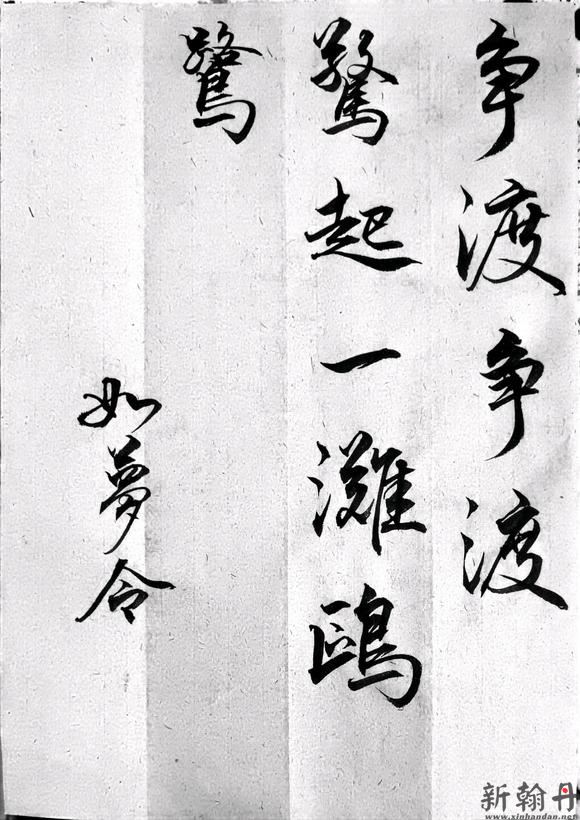 争渡争渡
驚起一灘鷗
鷺
如夢令
新翰丹
www.xinhandan.net